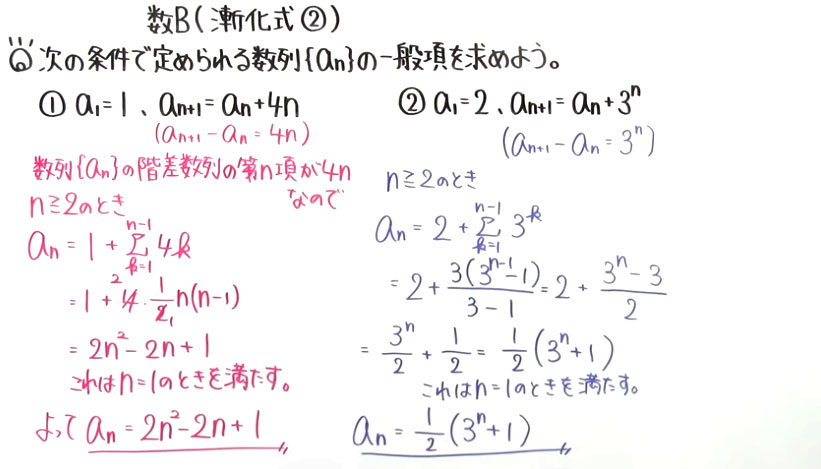 数B(漸化式②)
次の条件で定められる数列{aₙ}の一般項を求めよう。
① a₁=1、aₙ₊₁=aₙ+4n
(aₙ₊₁-aₙ=4n)
数列{aₙ}の階差数列の第n項が4n
なので
n≧2のとき
aₙ = 1 + Σ[k=1→n-1] 4k
= 1 + 4・1/2 n(n-1)
= 2n²-2n+1
これはn=1のときを満たす。
よって aₙ = 2n²-2n+1
② a₁=2、aₙ₊₁=aₙ+3ⁿ
(aₙ₊₁-aₙ=3ⁿ)
n≧2のとき
aₙ = 2 + Σ[k=1→n-1] 3ᵏ
= 2 + 3(3ⁿ⁻¹-1)/(3-1) = 2 + (3ⁿ-3)/2
= 3ⁿ/2 + 1/2 = 1/2(3ⁿ+1)
これはn=1のときを満たす。
aₙ = 1/2(3ⁿ+1)